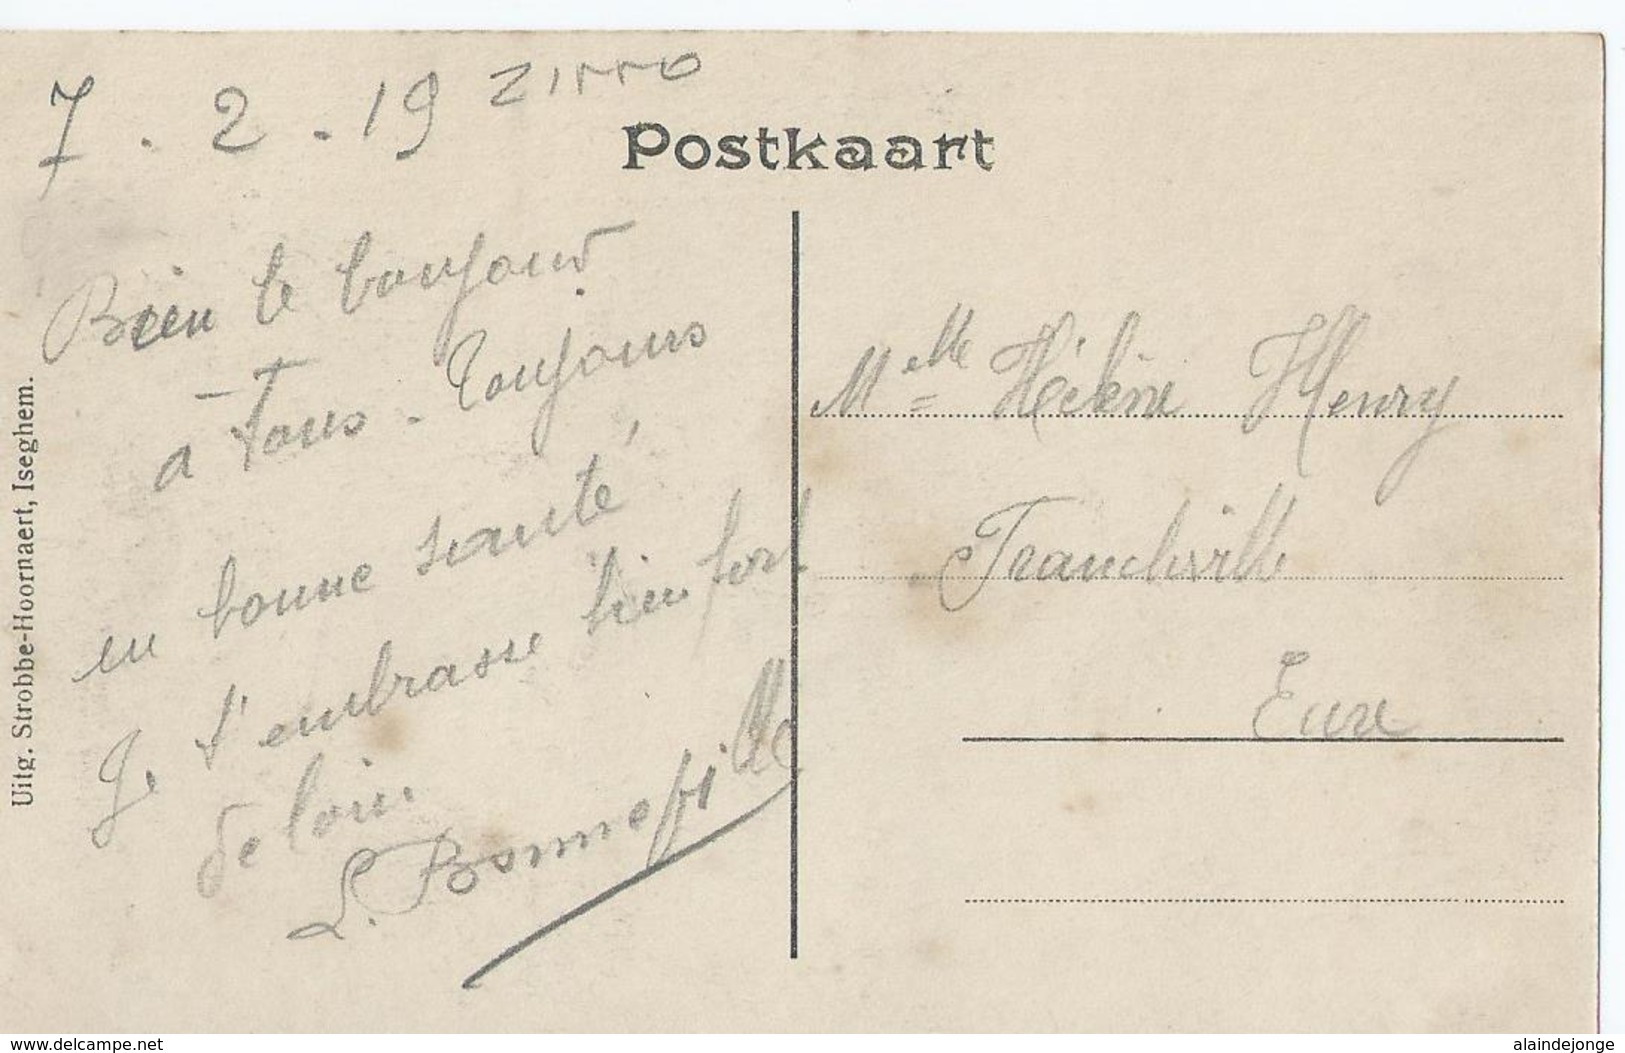 7 . 2 . 19
Postkaart
Bien le bonjour
à Tous - Toujours
en bonne santé,
Je t'embrasse bien fort
de loin.
L. Bonnefille
Melle Hélène Henry
Francheville
Eure
Uitg. Strobbe-Hoornaert, Iseghem.
www.delcampe.net
alaindejonge